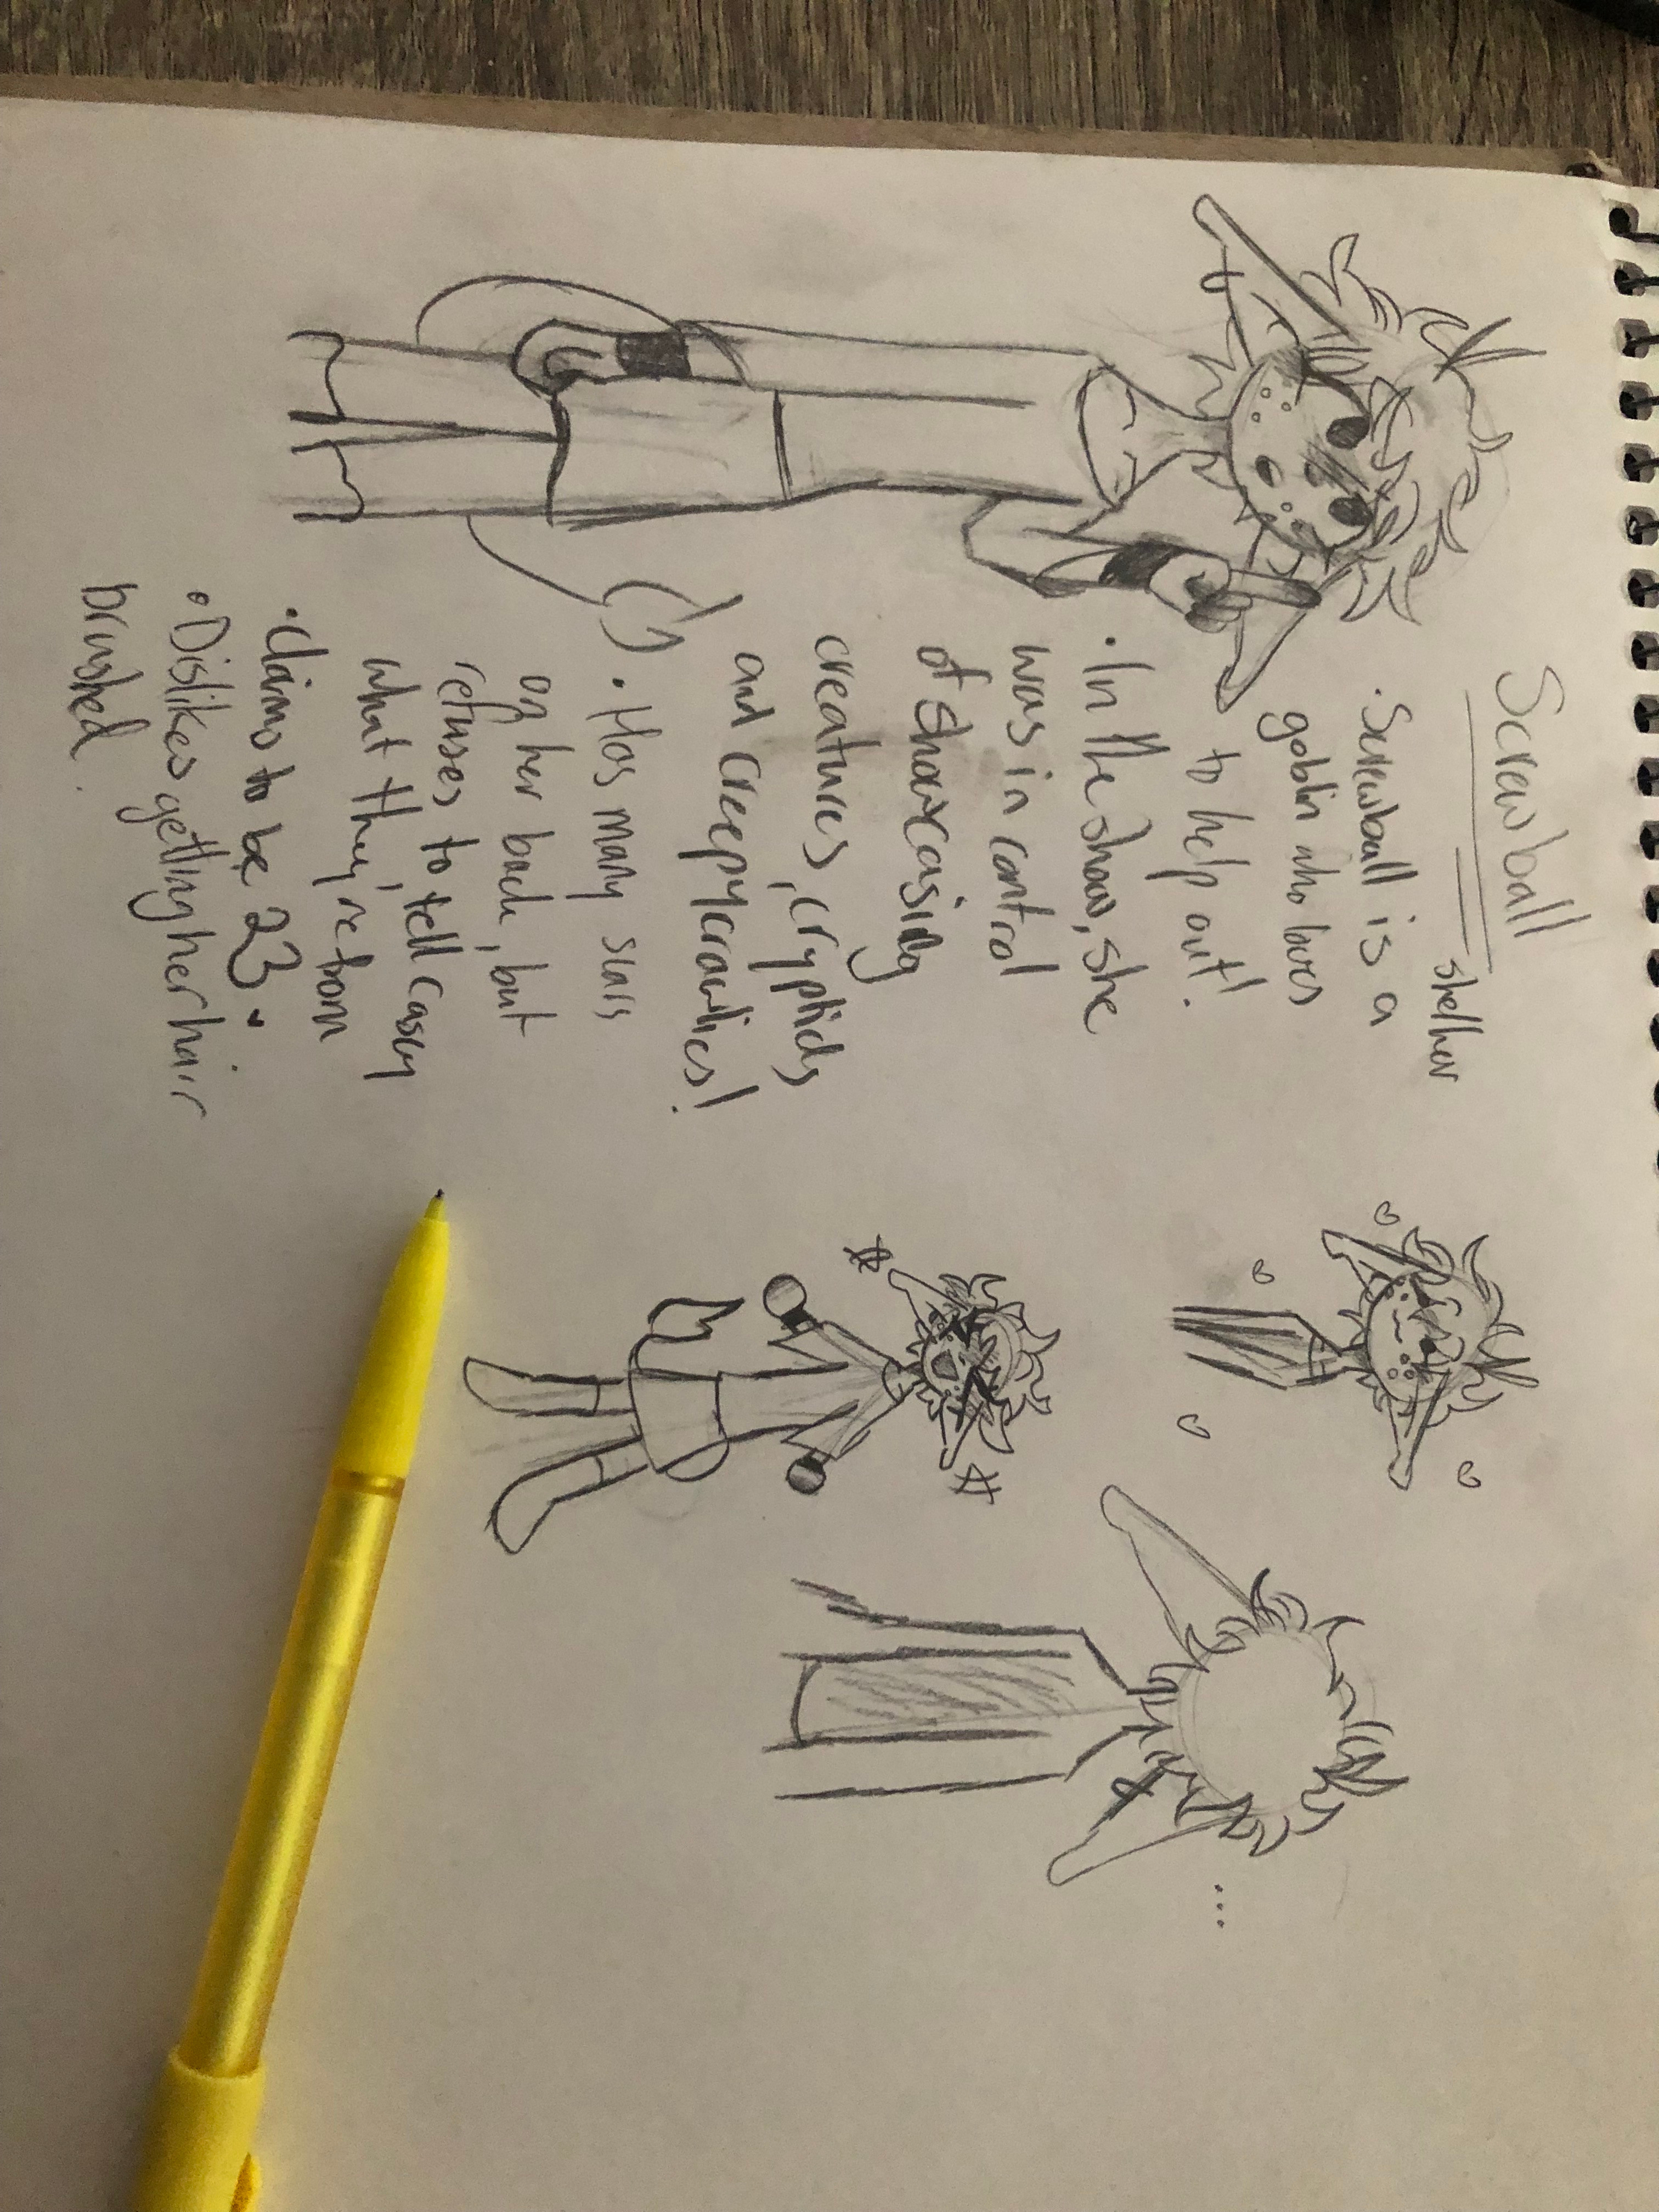 Screwball
she/her
• Screwball is a
goblin who loves
to help out!
• In the show, she
was in control
of showcasing
creatures, cryptids
and creepycrawlies!
• Has many scars
on her back, but
refuses to tell casey
what they're from
• claims to be 23.
• Dislikes getting her hair
brushed.
...